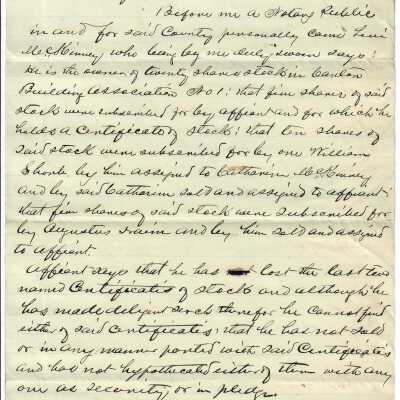 Before me a Notary Public
in and for said County personally came Levi
McKinney, who being by me duly sworn says:
He is the owner of twenty shares stock in Canton
Building Association No 1: that five shares of said
stock were subscribed for by affiant and for which he
holds a Certificate of Stock; that ten shares of
said stock were subscribed for by one William
by him assigned to Catharine McKinney
and by said Catharine sold and assigned to affiant:
that five shares of said stock were subscribed for
by Augustus and by him sold and assigned
to affiant.
Affiant says that he has lost the last two
named Certificates of stock and although he
has made diligent serch therefor he cannot find
either of said Certificates; that he has not sold
or in any manner parted with said Certificates
and has not hypothecated either of them with any
one as security, or in pledge.